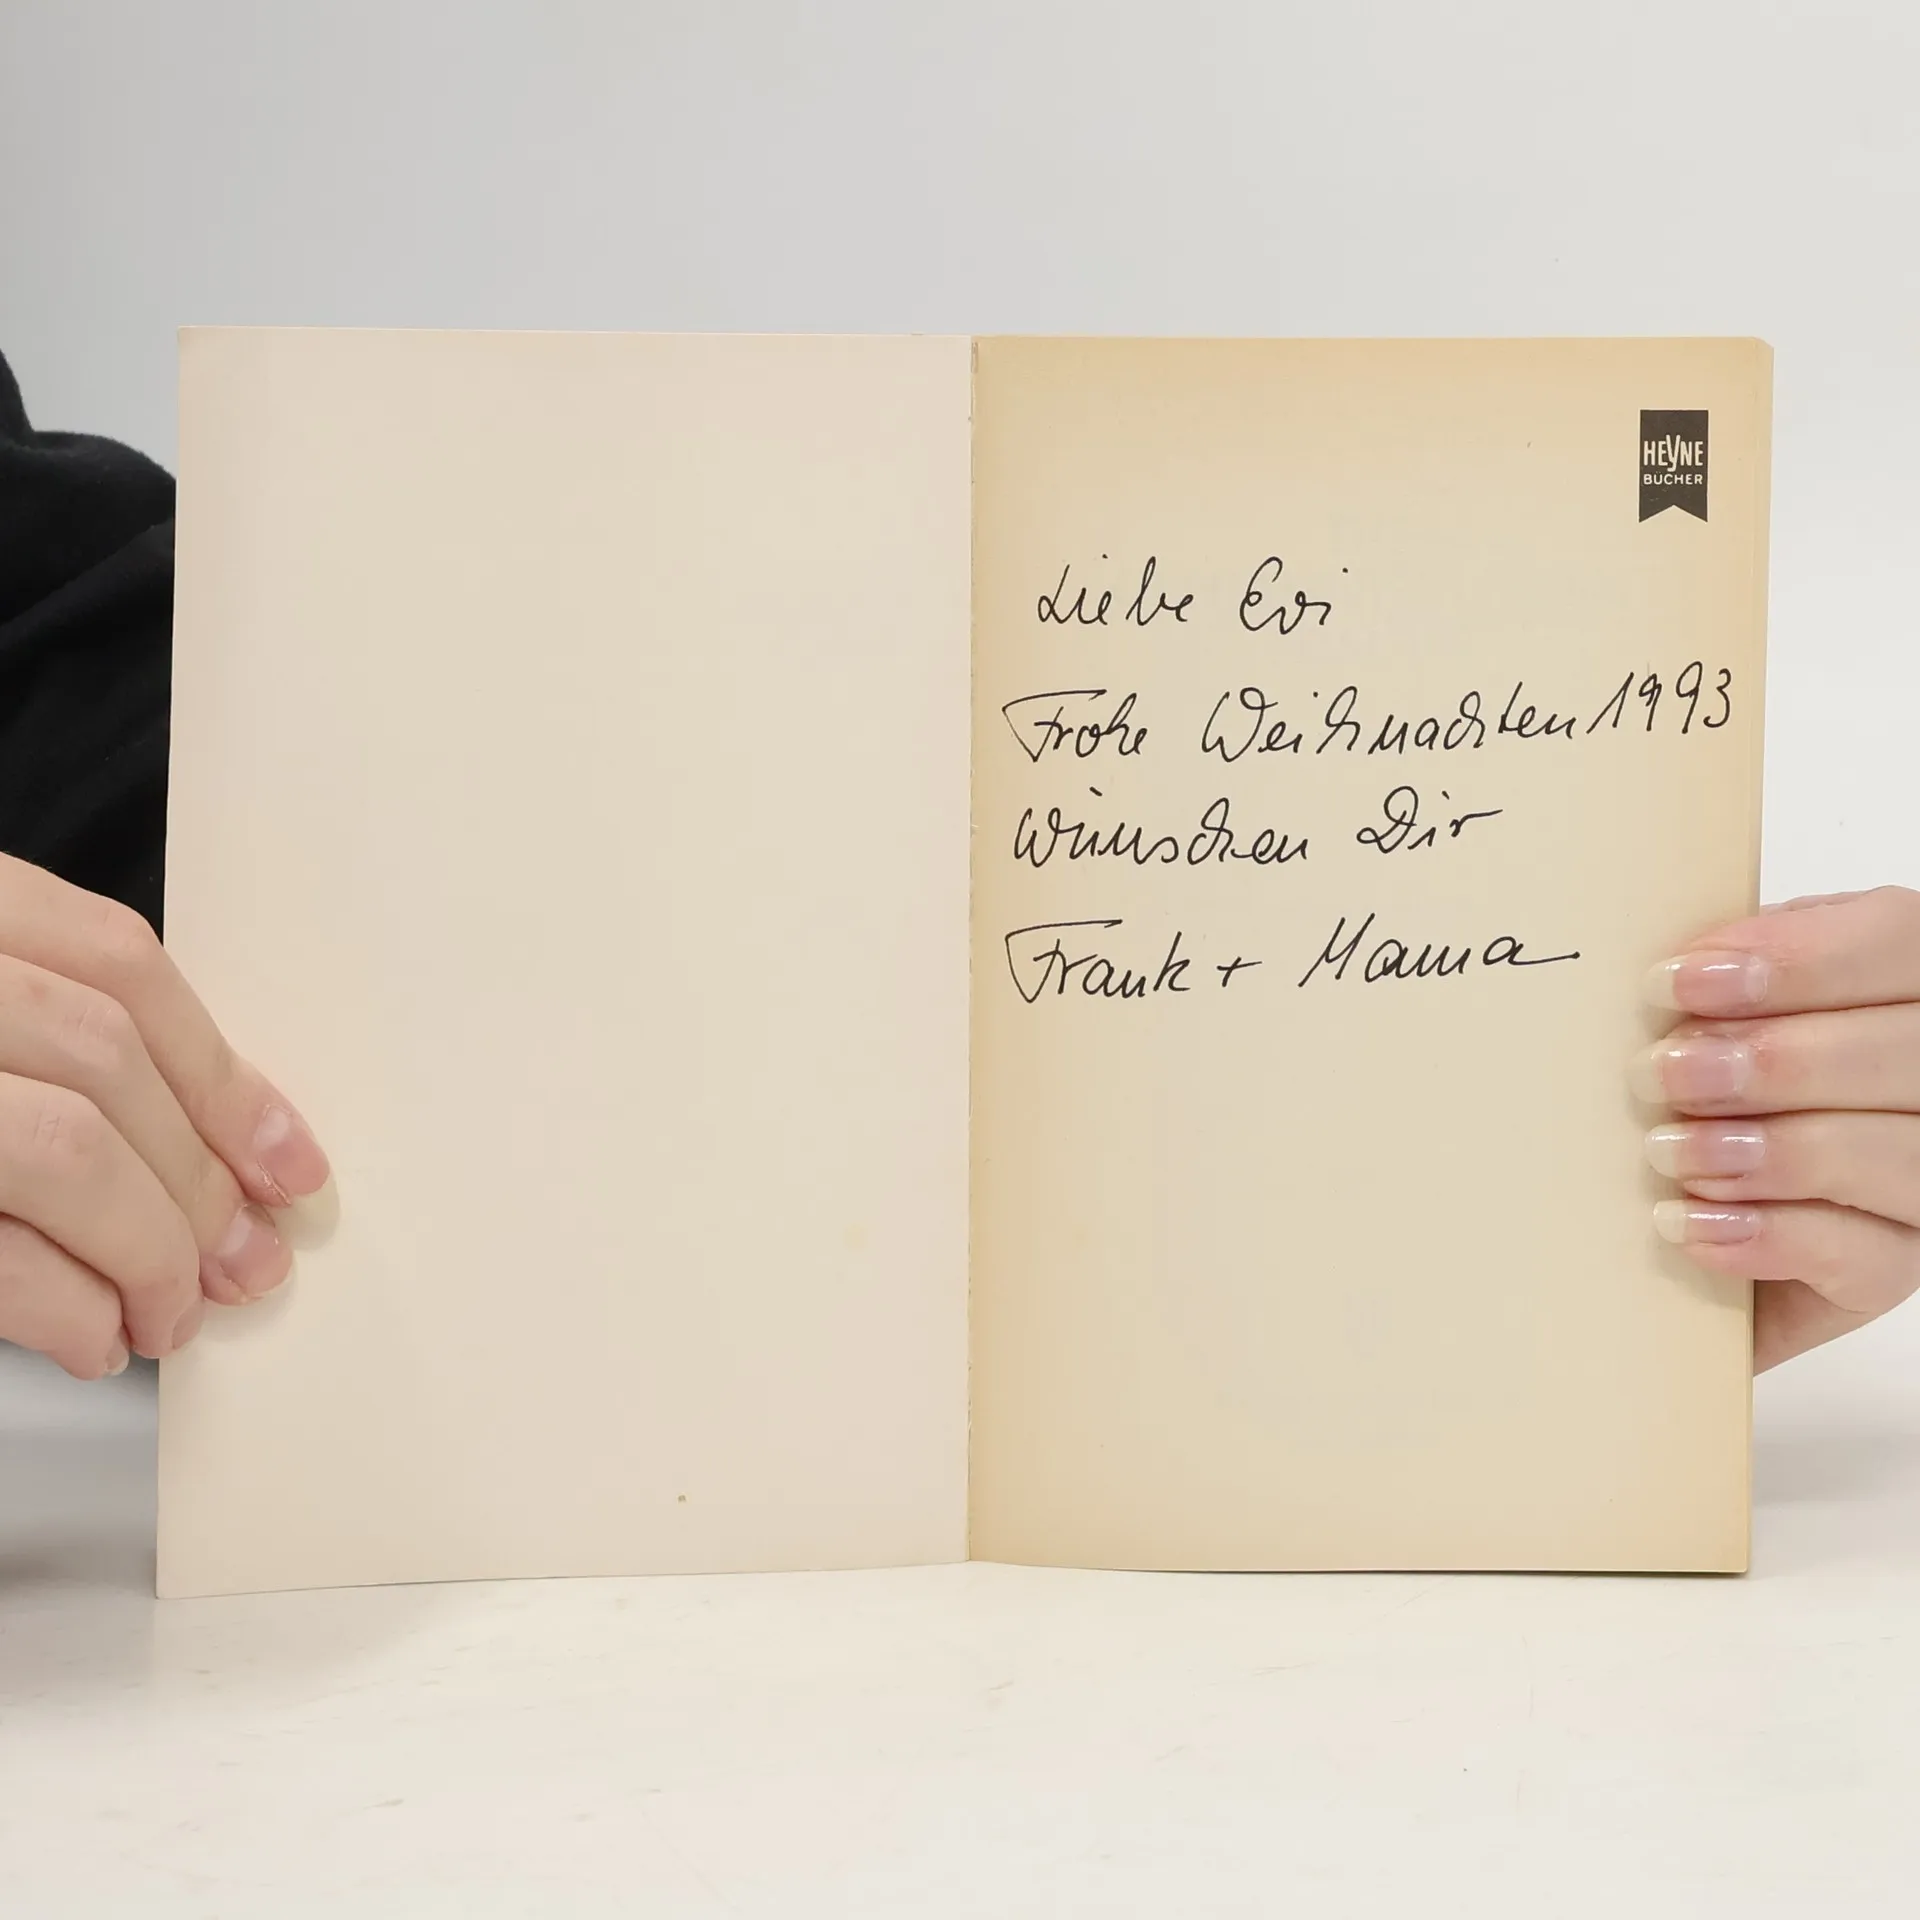 HEYNE
BÜCHER
Liebe Evi
Frohe Weihnachten 1993
wünschen Dir
Frank + Mama